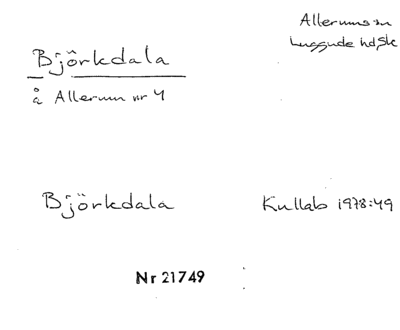 Allerums sn
Luggude hd, Sk
Björkdala
å Allerum nr 4
Björkdala
Kullab 1978:49
Nr 21749